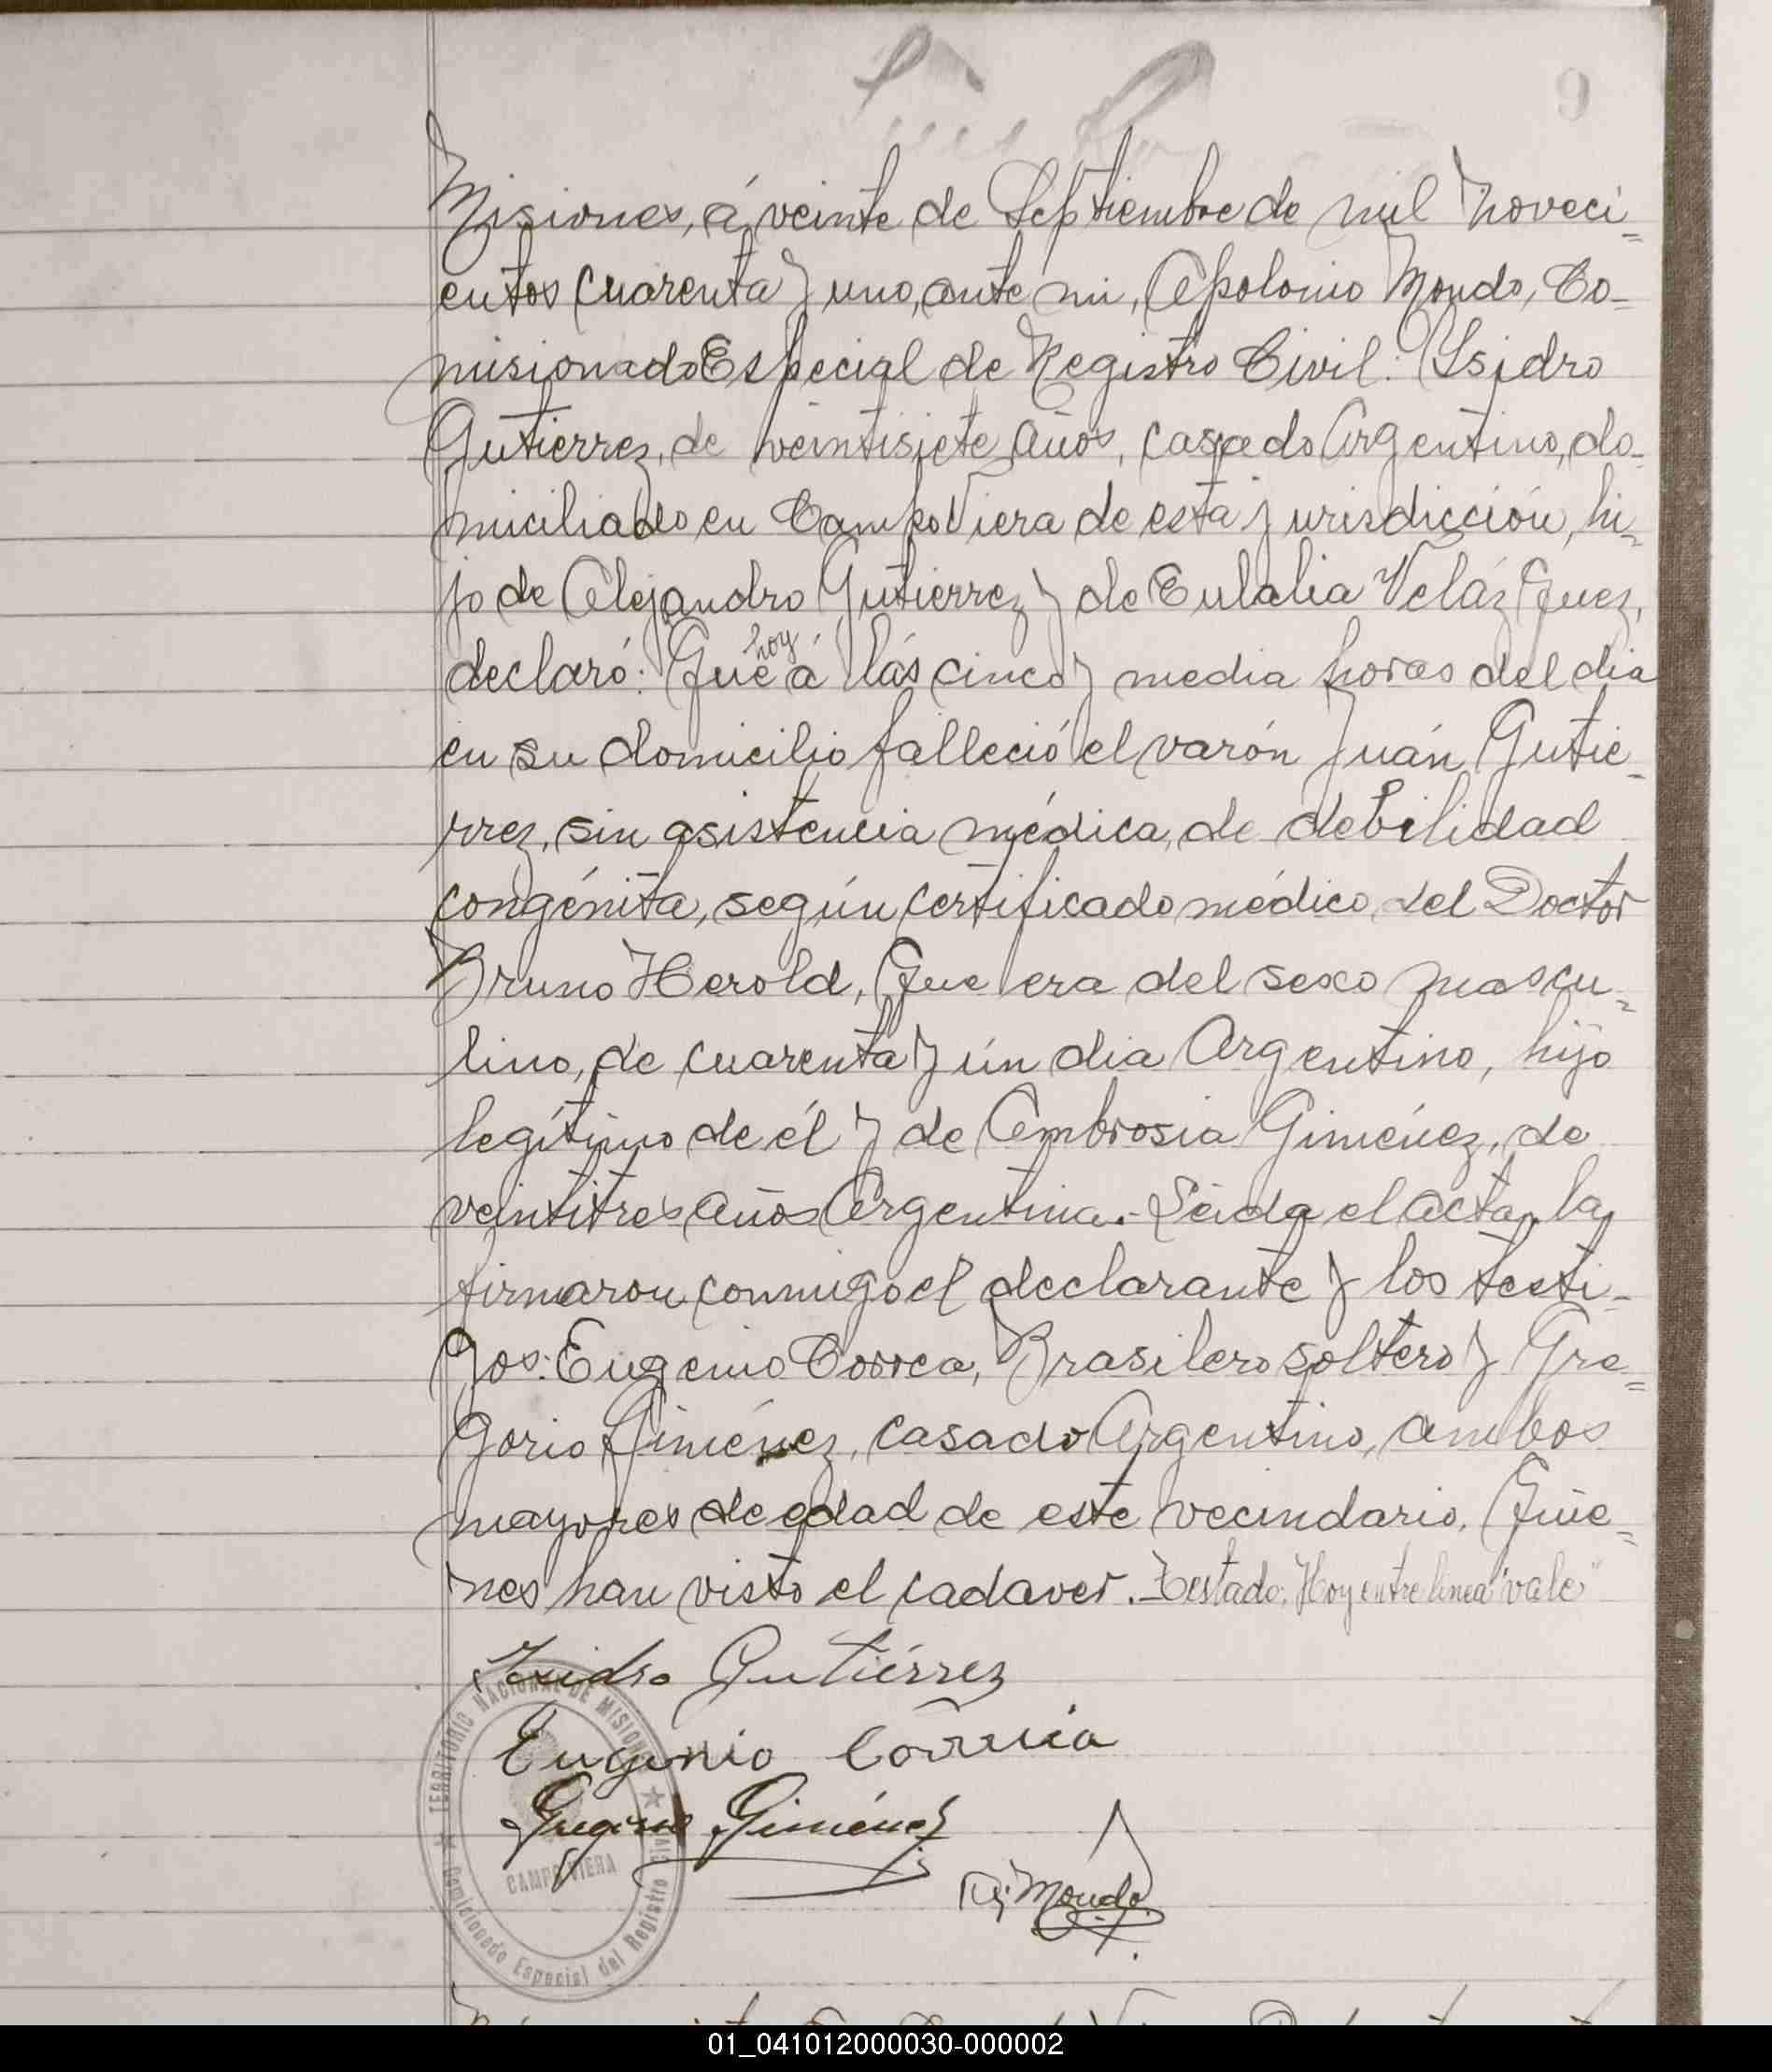 9
Misiones, á veinte de Septiembre de mil noveci=
entos cuarenta y uno, ante mi, Apolonio Mondo, Co-
misionado Especial de Registro Civil: Ysidro
Gutierrez, de veintisiete años, casado Argentino, do-
miciliado en Campo Viera de esta jurisdicción, hi=
jo de Alejandro Gutierrez y de Eulalia Velázquez,
hoy
declaró: Que á lás cinco y media horas del dia
en su domicilio falleció el varón Juán Gutie-
rrez, sin asistencia médica, de debilidad
congénita, según certificado médico del Doctor
Bruno Herold, que era del sexo mascu=
lino, de cuarenta y ún dia Argentino, hijo
legítimo de él y de Ambrosia Giménez, de
veintitres años Argentina.- Leida el acta, la
firmaron conmigo el declarante y los testi-
gos: Eugenio Correa, Brasilero soltero y Gre=
gorio Giménez, casado Argentino, ambos
mayores de edad de este vecindario, quie=
nes han visto el cadaver.- Testado: Hoy entre linea "vale"
Isidro Gutiérrez
Eugenio Correia
Gregorio Giménez
Mondo
TERRITORIO NACIONAL DE MISIONES
CAMPO VIERA
Comisionado Especial del Registro Civil
01_041012000030-000002